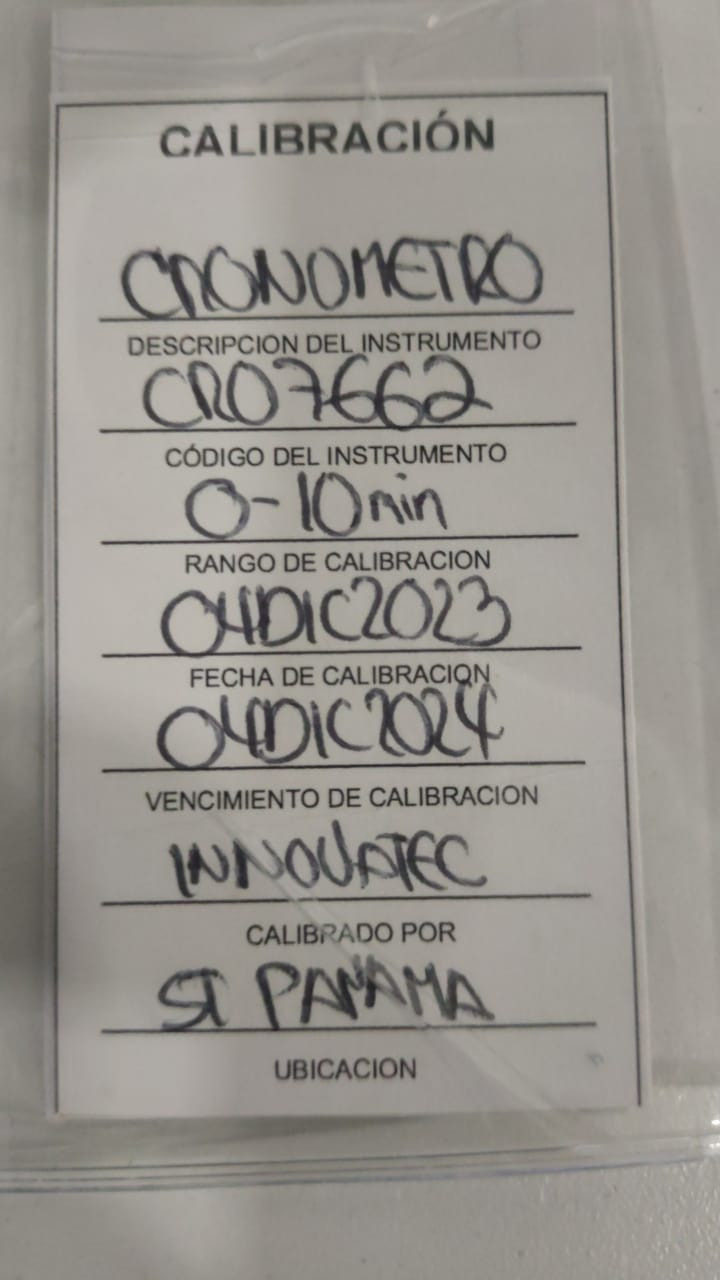 CALIBRACIÓN
CRONOMETRO
DESCRIPCION DEL INSTRUMENTO
CRO7662
CÓDIGO DEL INSTRUMENTO
0-10 min
RANGO DE CALIBRACION
04DIC2023
FECHA DE CALIBRACION
04DIC2024
VENCIMIENTO DE CALIBRACION
INNOVATEC
CALIBRADO POR
ST PANAMA
UBICACION